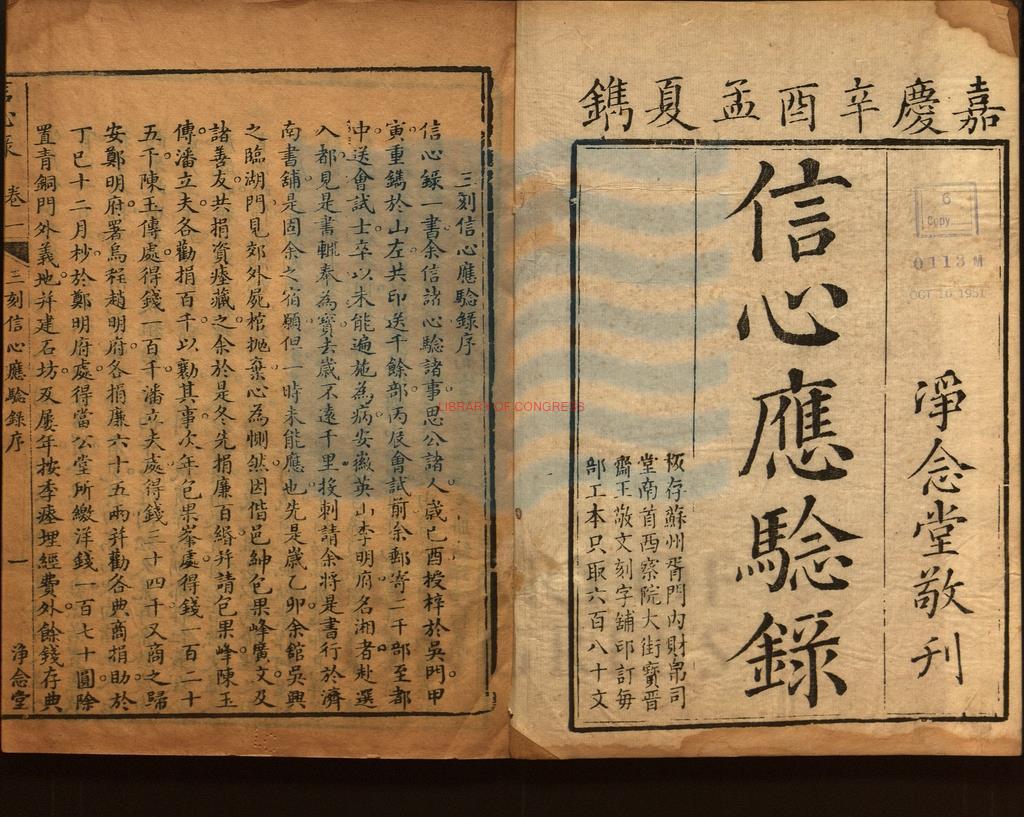 嘉慶辛酉孟夏鐫
淨念堂敬刊
信心應驗錄
板存蘇州胥門內財帛司
堂南首西察院大街寶晉
齋王敬文刻字舖印訂每
部工本只取六百八十文
6
Copy
0113 M
OCT 16 1951
LIBRARY OF CONGRESS
三刻信心應驗錄序
信心錄一書余信諸心驗諸事思公諸人歲己酉授梓於吳門甲
寅重鐫於山左共印送千餘部丙辰會試前余郵寄二千部至都
中送會試士卒以未能遍施為病安徽英山李明府名湘者赴選
入都見是書輒奉為寶去歲不遠千里投刺請余將是書行於濟
南書舖是固余之宿願但一時未能應也先是歲乙卯余舘吳興
之臨湖門見郊外屍棺拋棄心為惻然因偕邑紳包果峰廣文及
諸善友共捐資瘞藏之余於是冬先捐廉百緡并請包果峰陳玉
傳潘立夫各勸捐百千以勷其事次年包果峯處得錢一百二十
五千陳玉傳處得錢一百千潘立夫處得錢三十四千又商之歸
安鄭明府署烏程趙明府各捐廉六十五兩并勸各典商捐助於
丁巳十二月杪於鄭明府處得當公堂所繳洋錢一百七十圓除
置青銅門外義地并建石坊及屢年按季瘞埋經費外餘錢存典
信心錄 卷一 三刻信心應驗錄序 一 淨念堂